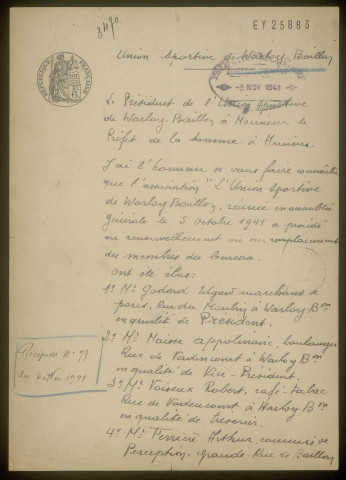 3470.
EY25883
Union Sportive de Warloy-Baillon
RÉPUBLIQUE FRANÇAISE
- 5 NOV 1941
Le Président de l'Union Sportive
de Warloy-Baillon à Monsieur le
Préfet de la Somme à Amiens.
J'ai l'honneur de vous faire connaître
que l'association "L'Union Sportive
de Warloy Baillon, réunie en assemblée
générale le 5 octobre 1941 a procédé
au renouvellement ou au remplacement
des membres du bureau.
ont été élus:
1º Mr Godard Edgard marchand de
porcs, Rue du Moulin à Warloy-Bon
en qualité de Président.
2º Mr Maisse Appolinaire, boulanger
Rue de Vadencourt à Warloy Bon
en qualité de Vice-Président.
Récépissé Nº 97
du 6 Nov 1941
3º Mr Vaseux Robert, café-tabac
Rue de Vadencourt à Warloy-Bon
en qualité de trésorier.
4º Mr Ferrière Arthur, commis de
Perception, grande Rue de Baillon